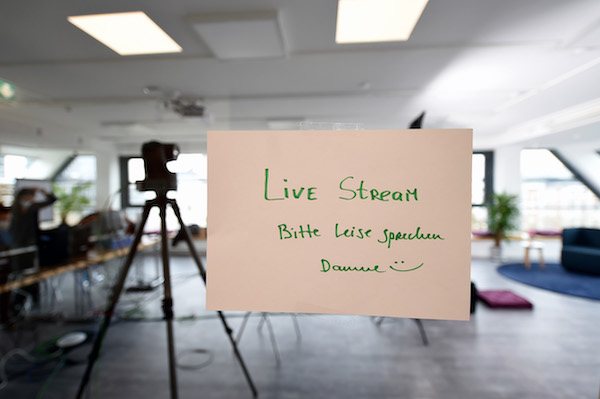 Live Stream
Bitte leise sprechen
Danne :)